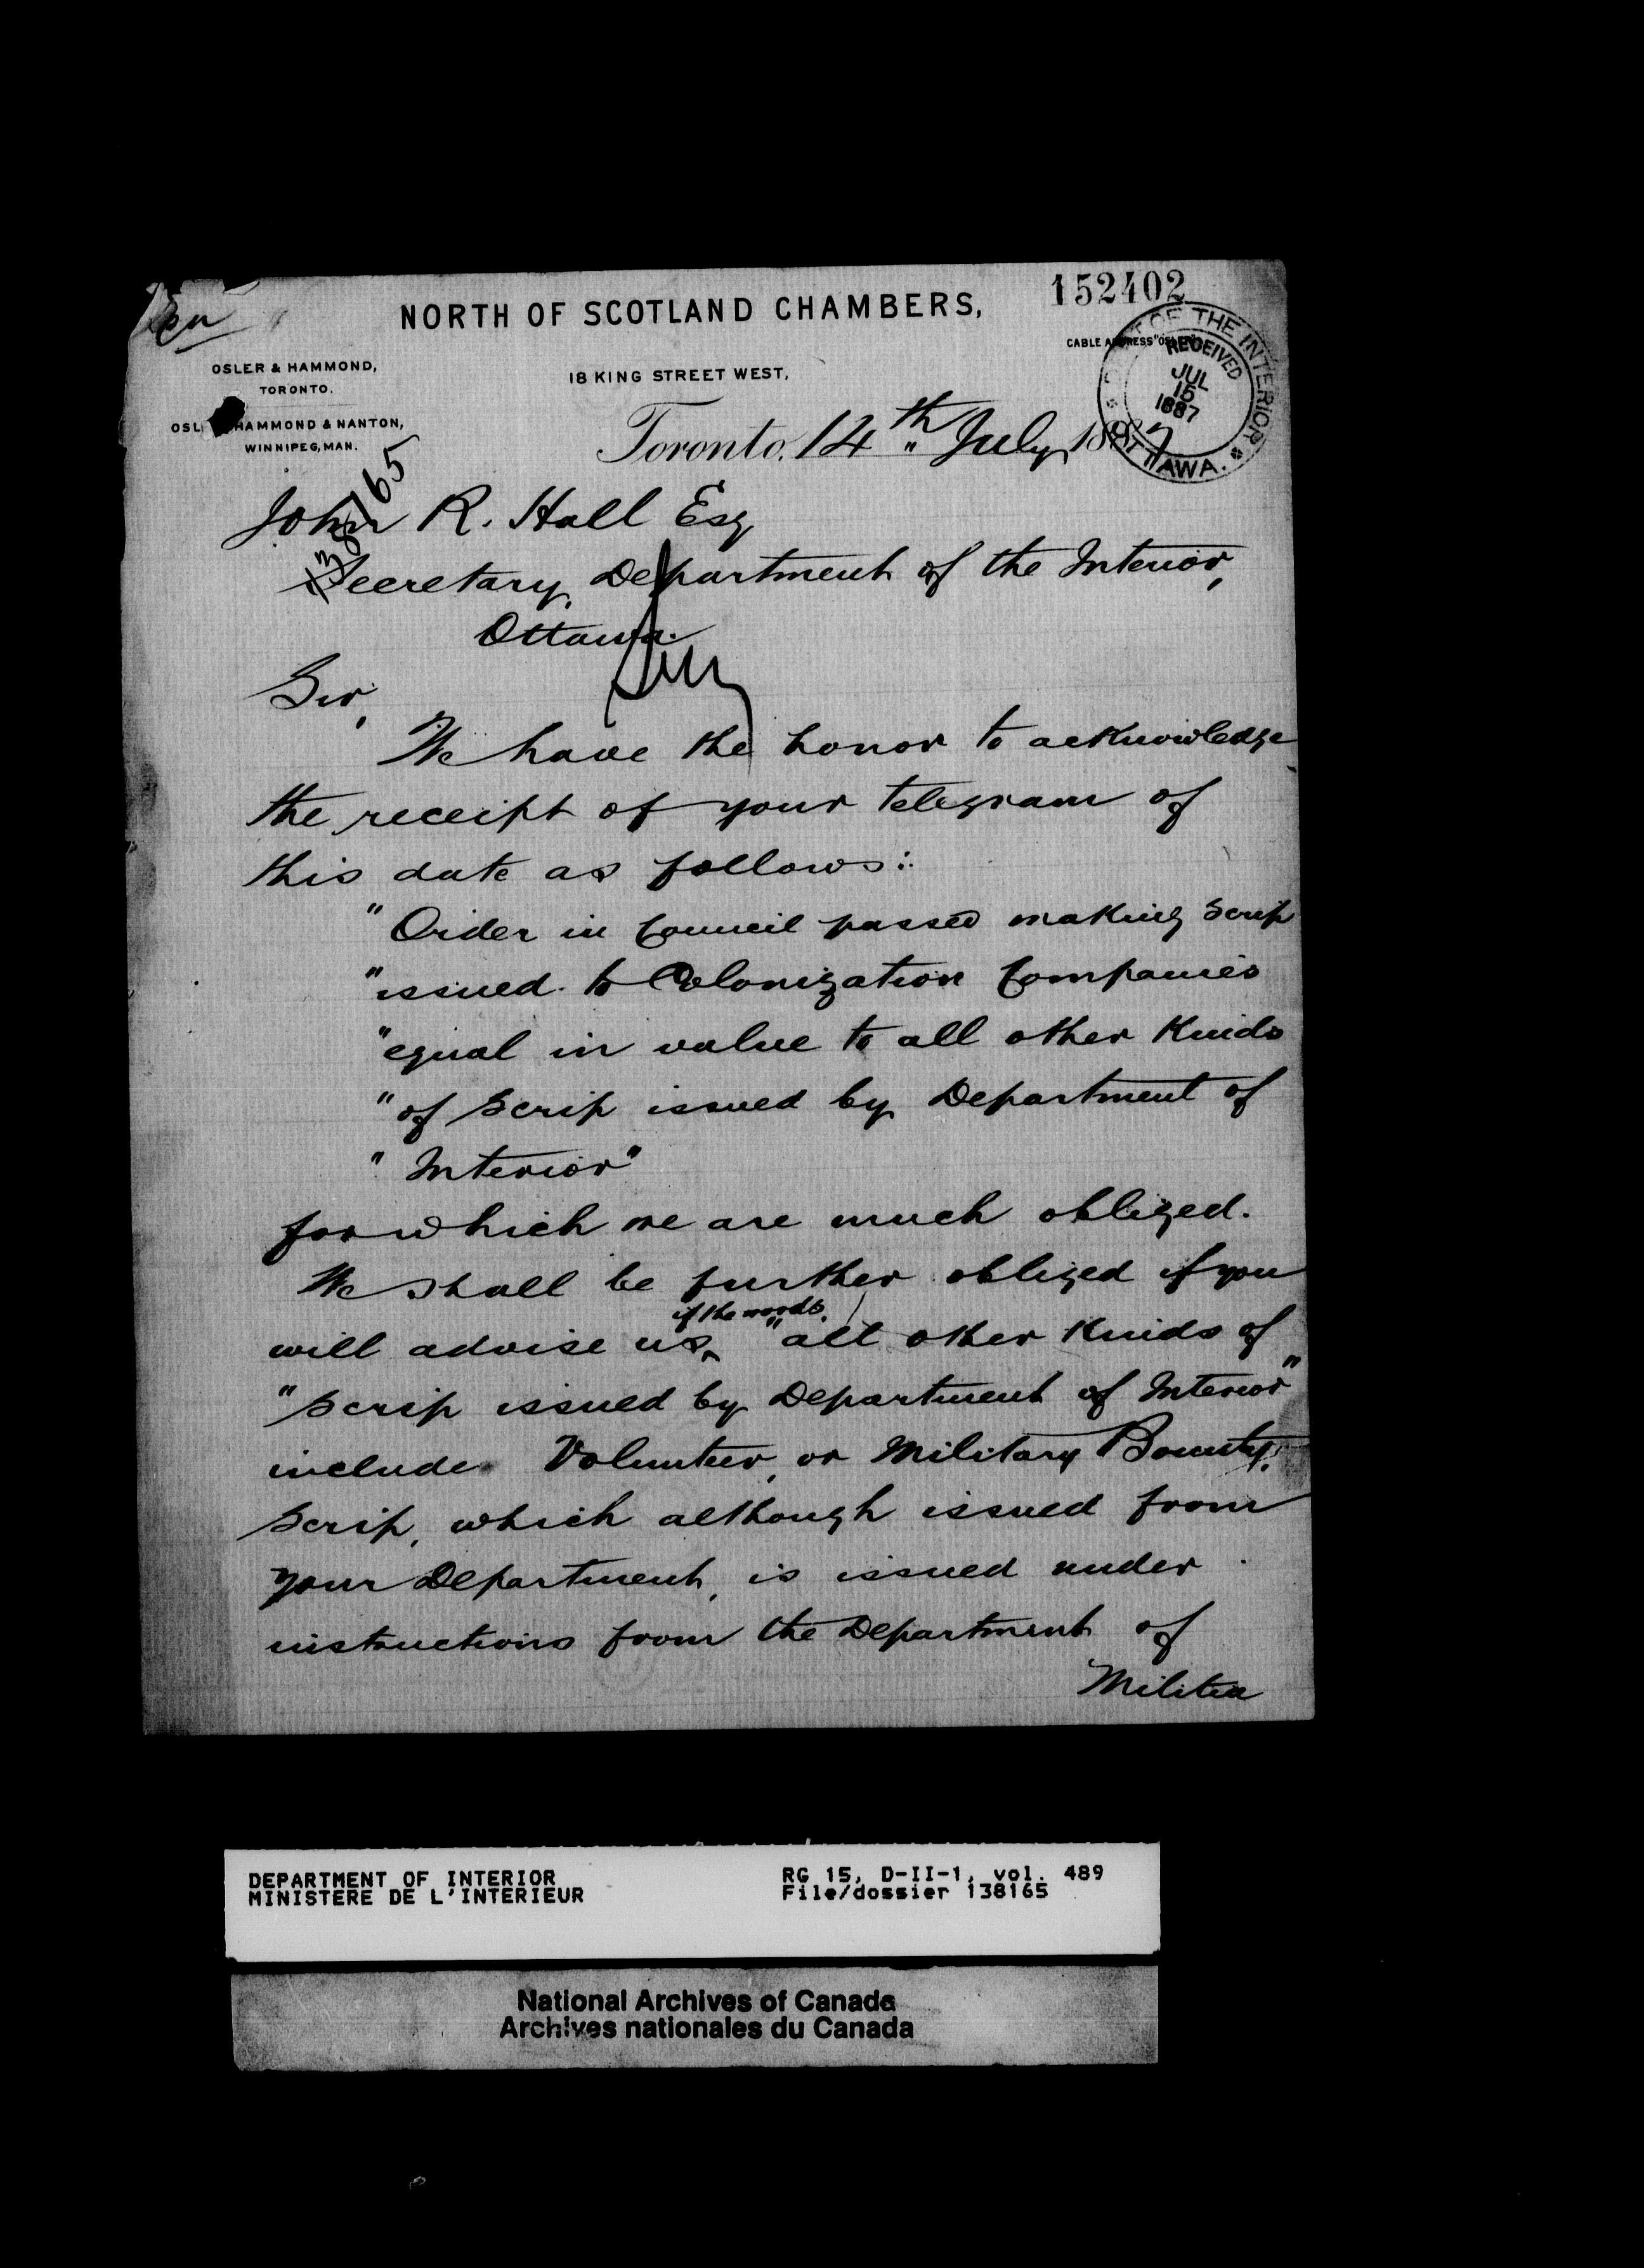 152402
NORTH OF SCOTLAND CHAMBERS,
CABLE ADDRESS
OSLER & HAMMOND,
TORONTO.
18 KING STREET WEST,
HAMMOND & NANTON,
WINNIPEG, MAN.
OF THE INTERIOR
RECEIVED
JUL
15
1887
Toronto, 14th July 1887
138165
John R. Hall Esq
Secretary, Department of the Interior,
Ottawa.
Sir,
We have the honor to acknowledge
the receipt of your telegram of
this date as follows:
"Order in Council passed making scrip
"issued to Colonization Companies
"equal in value to all other kinds
"of scrip issued by Department of
"Interior"
for which we are much obliged.
We shall be further obliged if you
if the words
will advise us "all other kinds of
"scrip issued by Department of Interior"
include Volunteer, or Military Bounty
scrip, which although issued from
your Department, is issued under
instructions from the Department of
Militia
DEPARTMENT OF INTERIOR
MINISTERE DE L'INTERIEUR
RG 15, D-II-1, vol. 489
File/dossier 138165
National Archives of Canada
Archives nationales du Canada